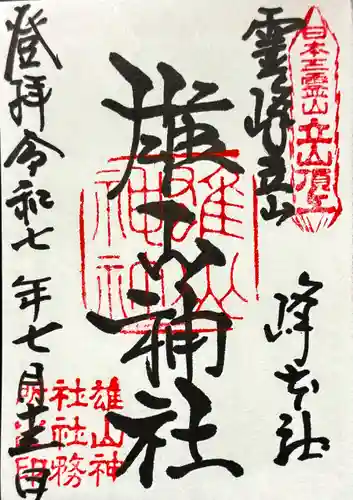 日本三霊山
立山頂上
霊峰立山
峰本社
雄山神社
雄山神社
雄山神
社社務
所印
登拝令和七年七月十二日